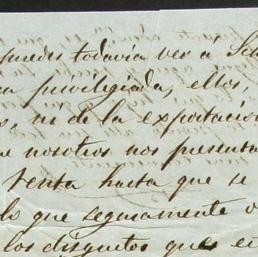 puedes todavia ver á
privilegiada, ellos,
ni de la exportacion
nosotros nos presenta
venta hasta que se
lo que seguramente
los disgustos que en